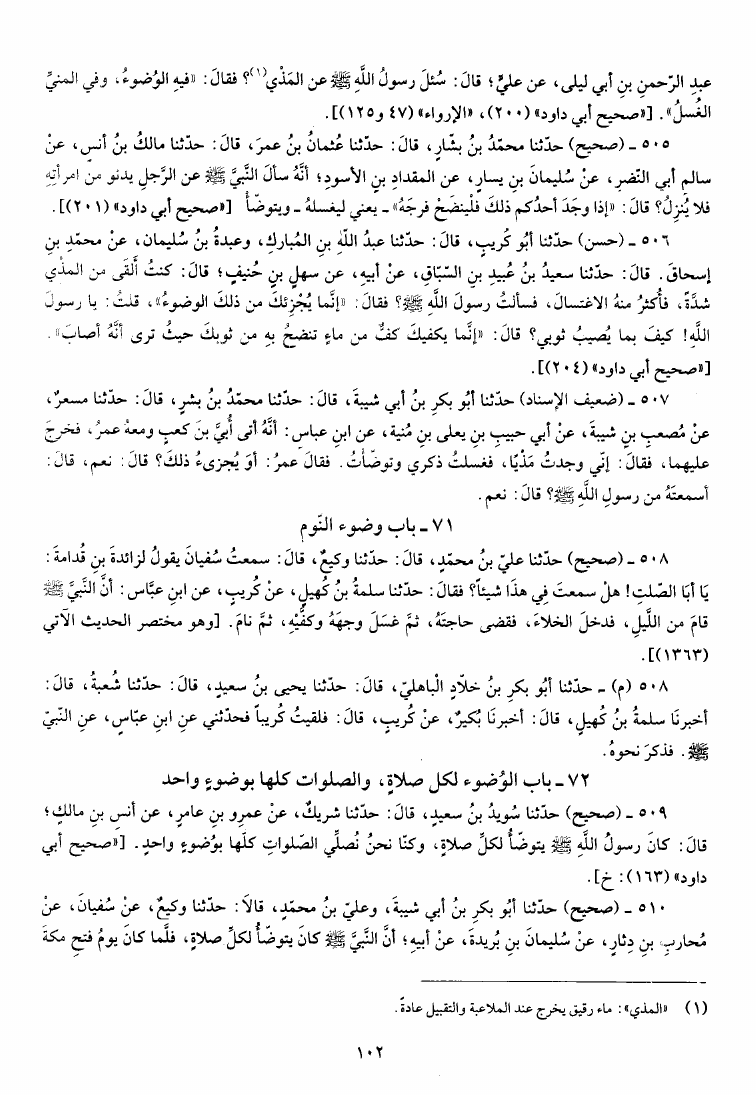 عبدِ الرّحمنِ بنِ أبي ليلى، عن عليٍّ؛ قالَ: سُئلَ رسولُ اللَّهِ ﷺ عن المَذْي(١)؟ فقالَ: «فيهِ الوُضوءُ، وفي المنيِّ
الغُسلُ». [«صحيح أبي داود» (٢٠٠)، «الإرواء» (٤٧ و١٢٥)].
٥٠٥ ـ (صحيح) حدّثنا محمّدُ بنُ بشّارٍ، قالَ: حدّثنا عُثمانُ بنُ عمرَ، قالَ: حدّثنا مالكُ بنُ أنسٍ، عنْ
سالم أبي النّضرِ، عنْ سُليمانَ بنِ يسارٍ، عن المقدادِ بنِ الأسودِ؛ أنَّهُ سألَ النَّبيَّ ﷺ عن الرَّجلِ يدنو من امرأتِهِ
فلا يُنزِلُ؟ قالَ: «إذا وجَدَ أحدُكم ذلكَ فلْينضَحْ فرجَهُ» ـ يعني ليغسلهُ ـ ويتوضَّأُ [«صحيح أبي داود» (٢٠١)].
٥٠٦ ـ (حسن) حدّثنا أبُو كُريبٍ، قالَ: حدّثنا عبدُ اللّٰهِ بنِ المُباركِ، وعبدةُ بنُ سُليمان، عنْ محمّدِ بنِ
إسحاقَ. قالَ: حدّثنا سعيدُ بنُ عُبيدِ بنِ السّبّاقِ، عنْ أبيهِ، عن سهلِ بنِ حُنيفٍ؛ قالَ: كنتُ ألْقَى من المذْي
شدَّةً، فأُكثرُ منهُ الاغتسالَ، فسألتُ رسولَ اللَّهِ ﷺ؟ فقالَ: «إنَّما يُجْزئكَ من ذلكَ الوضوءُ»، قلتُ: يا رسولَ
اللَّهِ! كيفَ بما يُصيبُ ثوبي؟ قالَ: «إنَّما يكفيكَ كفٌّ من ماءٍ تنضحُ بهِ من ثوبكَ حيثُ ترى أنَّهُ أصابَ».
[«صحيح أبي داود» (٢٠٤)].
٥٠٧ ـ (ضعيف الإسناد) حدّثنا أبُو بكرِ بنُ أبي شيبةَ، قالَ: حدّثنا محمّدُ بنُ بشرٍ، قالَ: حدّثنا مسعرٌ،
عنْ مُصعبِ بنِ شيبةَ، عنْ أبي حبيبِ بنِ يعلى بنِ مُنية، عن ابنِ عباسٍ: أنَّهُ أتى أُبيَّ بنَ كعبٍ ومعهُ عمرُ، فخرجَ
عليهما، فقالَ: إنّي وجدتُ مَذْيًا، فغسلتُ ذكري وتوضّأتُ. فقالَ عمرُ: أوَ يُجزىءُ ذلكَ؟ قالَ: نعم، قالَ:
أسمعتَهُ من رسولِ اللَّهِ ﷺ؟ قالَ: نعم.
٧١ ـ باب وضوء النّوم
٥٠٨ ـ (صحيح) حدّثنا عليّ بنُ محمّدٍ، قالَ: حدّثنا وكيعٌ، قالَ: سمعتُ سُفيانَ يقولُ لزائدةَ بنِ قُدامةَ:
يَا أبَا الصّلتِ! هلْ سمعتَ فِي هذَا شيئاً؟ فقالَ: حدّثنا سلمةُ بنُ كُهيلٍ، عنْ كُريبٍ، عن ابنِ عبَّاس: أنَّ النَّبيَّ ﷺ
قامَ من اللَّيلِ، فدخلَ الخلاءَ، فقضى حاجتَهُ، ثمَّ غسَلَ وجهَهُ وكفَّيْهِ، ثمَّ نامَ. [وهو مختصر الحديث الآتي
(١٣٦٣)].
٥٠٨ (م) ـ حدّثنا أبُو بكرِ بنُ خلّادٍ الْباهليّ، قالَ: حدّثنا يحيى بنُ سعيدٍ، قالَ: حدّثنا شُعبةُ، قالَ:
أخبرنَا سلمةُ بنُ كُهيلٍ، قالَ: أخبرنَا بُكيرٌ، عنْ كُريبٍ، قالَ: فلقيتُ كُريباً فحدّثني عنِ ابنِ عبّاسٍ، عنِ النّبيّ
ﷺ. فذكرَ نحوهُ.
٧٢ ـ باب الوُضوء لكل صلاةٍ، والصلوات كلها بوضوءٍ واحد
٥٠٩ ـ (صحيح) حدّثنا سُويدُ بنُ سعيدٍ، قالَ: حدّثنا شريكٌ، عنْ عمرِو بنِ عامرٍ، عن أنسِ بنِ مالكٍ؛
قالَ: كانَ رسولُ اللَّهِ ﷺ يتوضّأُ لكلِّ صلاةٍ، وكنّا نحنُ نُصلِّي الصّلواتِ كلَّها بوُضوءٍ واحدٍ. [«صحيح أبي
داود» (١٦٣): خ].
٥١٠ ـ (صحيح) حدّثنا أبُو بكرِ بنُ أبي شيبةَ، وعليّ بنُ محمّدٍ، قالَا: حدّثنا وكيعٌ، عنْ سُفيانَ، عنْ
مُحاربِ بنِ دِثارٍ، عنْ سُليمانَ بنِ بُريدةَ، عنْ أبيهِ؛ أنَّ النَّبيَّ ﷺ كانَ يتوضّأُ لكلِّ صلاةٍ، فلَّما كانَ يومُ فتحِ مكةَ
(١) «المذي»: ماء رقيق يخرج عند الملاعبة والتقبيل عادةً.
١٠٢